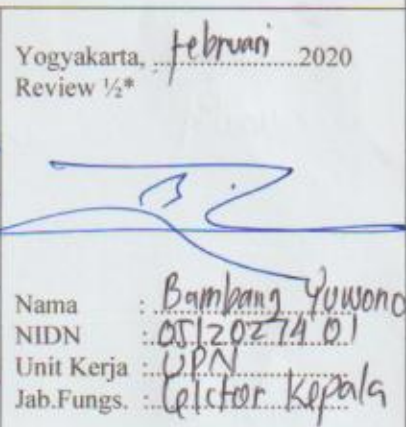 Yogyakarta, ...Februari...2020
Review ½*
Nama : Bambang Yuwono
NIDN : 0512027401
Unit Kerja : UPN
Jab.Fungs. : Lektor Kepala